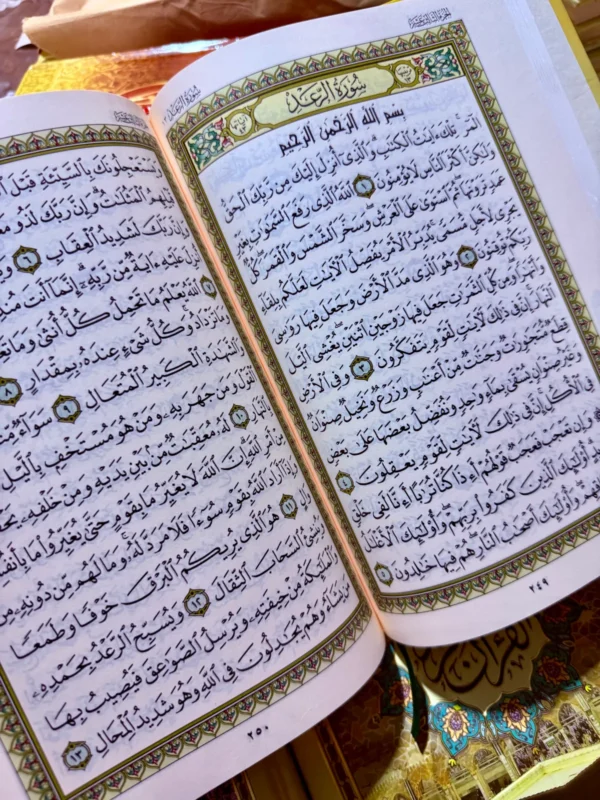 سُورَةُ الرَّعْدِ
بِسْمِ ٱللَّهِ ٱلرَّحْمَٰنِ ٱلرَّحِيمِ
الٓمٓرۚ تِلْكَ ءَايَٰتُ ٱلْكِتَٰبِۗ وَٱلَّذِىٓ أُنزِلَ إِلَيْكَ مِن رَّبِّكَ ٱلْحَقُّ
وَلَٰكِنَّ أَكْثَرَ ٱلنَّاسِ لَا يُؤْمِنُونَ ١ ٱللَّهُ ٱلَّذِى رَفَعَ ٱلسَّمَٰوَٰتِ بِغَيْرِ
عَمَدٍ تَرَوْنَهَاۖ ثُمَّ ٱسْتَوَىٰ عَلَى ٱلْعَرْشِۖ وَسَخَّرَ ٱلشَّمْسَ وَٱلْقَمَرَۖ كُلٌّ
يَجْرِى لِأَجَلٍ مُّسَمًّىۚ يُدَبِّرُ ٱلْأَمْرَ يُفَصِّلُ ٱلْءَايَٰتِ لَعَلَّكُم بِلِقَآءِ
رَبِّكُمْ تُوقِنُونَ ٢ وَهُوَ ٱلَّذِى مَدَّ ٱلْأَرْضَ وَجَعَلَ فِيهَا رَوَٰسِىَ
وَأَنْهَٰرًاۖ وَمِن كُلِّ ٱلثَّمَرَٰتِ جَعَلَ فِيهَا زَوْجَيْنِ ٱثْنَيْنِۖ يُغْشِى ٱلَّيْلَ
ٱلنَّهَارَۚ إِنَّ فِى ذَٰلِكَ لَءَايَٰتٍ لِّقَوْمٍ يَتَفَكَّرُونَ ٣ وَفِى ٱلْأَرْضِ
قِطَعٌ مُّتَجَٰوِرَٰتٌ وَجَنَّٰتٌ مِّنْ أَعْنَٰبٍ وَزَرْعٌ وَنَخِيلٌ صِنْوَانٌ
وَغَيْرُ صِنْوَانٍ يُسْقَىٰ بِمَآءٍ وَٰحِدٍ وَنُفَضِّلُ بَعْضَهَا عَلَىٰ بَعْضٍ
فِى ٱلْأُكُلِۚ إِنَّ فِى ذَٰلِكَ لَءَايَٰتٍ لِّقَوْمٍ يَعْقِلُونَ ٤
وَإِن تَعْجَبْ فَعَجَبٌ قَوْلُهُمْ أَءِذَا كُنَّا تُرَٰبًا أَءِنَّا لَفِى خَلْقٍ
جَدِيدٍۗ أُو۟لَٰٓئِكَ ٱلَّذِينَ كَفَرُوا۟ بِرَبِّهِمْۖ وَأُو۟لَٰٓئِكَ ٱلْأَغْلَٰلُ
وَأُو۟لَٰٓئِكَ أَصْحَٰبُ ٱلنَّارِۖ هُمْ فِيهَا خَٰلِدُونَ ٥
٢٤٩
سُورَةُ الرَّعْدِ
وَيَسْتَعْجِلُونَكَ بِٱلسَّيِّئَةِ قَبْلَ
قَبْلِهِمُ ٱلْمَثُلَٰتُۗ وَإِنَّ رَبَّكَ لَذُو
وَإِنَّ رَبَّكَ لَشَدِيدُ ٱلْعِقَابِ ٦
أُنزِلَ عَلَيْهِ ءَايَةٌ مِّن رَّبِّهِۦٓۗ إِنَّمَآ أَنتَ
ٱللَّهُ يَعْلَمُ مَا تَحْمِلُ كُلُّ أُنثَىٰ وَمَا
وَمَا تَزْدَادُۖ وَكُلُّ شَىْءٍ عِندَهُۥ بِمِقْدَارٍ ٨
وَٱلشَّهَٰدَةِ ٱلْكَبِيرُ ٱلْمُتَعَالِ ٩ سَوَآءٌ
ٱلْقَوْلَ وَمَن جَهَرَ بِهِۦ وَمَنْ هُوَ مُسْتَخْفٍۭ بِٱلَّيْلِ
بِٱلنَّهَارِ ١٠ لَهُۥ مُعَقِّبَٰتٌ مِّنۢ بَيْنِ يَدَيْهِ وَمِنْ خَلْفِهِۦ
مِنْ أَمْرِ ٱللَّهِۗ إِنَّ ٱللَّهَ لَا يُغَيِّرُ مَا بِقَوْمٍ حَتَّىٰ يُغَيِّرُوا۟ مَا
وَإِذَآ أَرَادَ ٱللَّهُ بِقَوْمٍ سُوٓءًا فَلَا مَرَدَّ لَهُۥۚ وَمَا لَهُم مِّن دُونِهِۦ مِن
وَالٍ ١١ هُوَ ٱلَّذِى يُرِيكُمُ ٱلْبَرْقَ خَوْفًا وَطَمَعًا
وَيُنشِئُ ٱلسَّحَابَ ٱلثِّقَالَ ١٢ وَيُسَبِّحُ ٱلرَّعْدُ بِحَمْدِهِۦ
وَٱلْمَلَٰٓئِكَةُ مِنْ خِيفَتِهِۦ وَيُرْسِلُ ٱلصَّوَٰعِقَ فَيُصِيبُ بِهَا
مَن يَشَآءُ وَهُمْ يُجَٰدِلُونَ فِى ٱللَّهِ وَهُوَ شَدِيدُ ٱلْمِحَالِ ١٣
٢٥٠